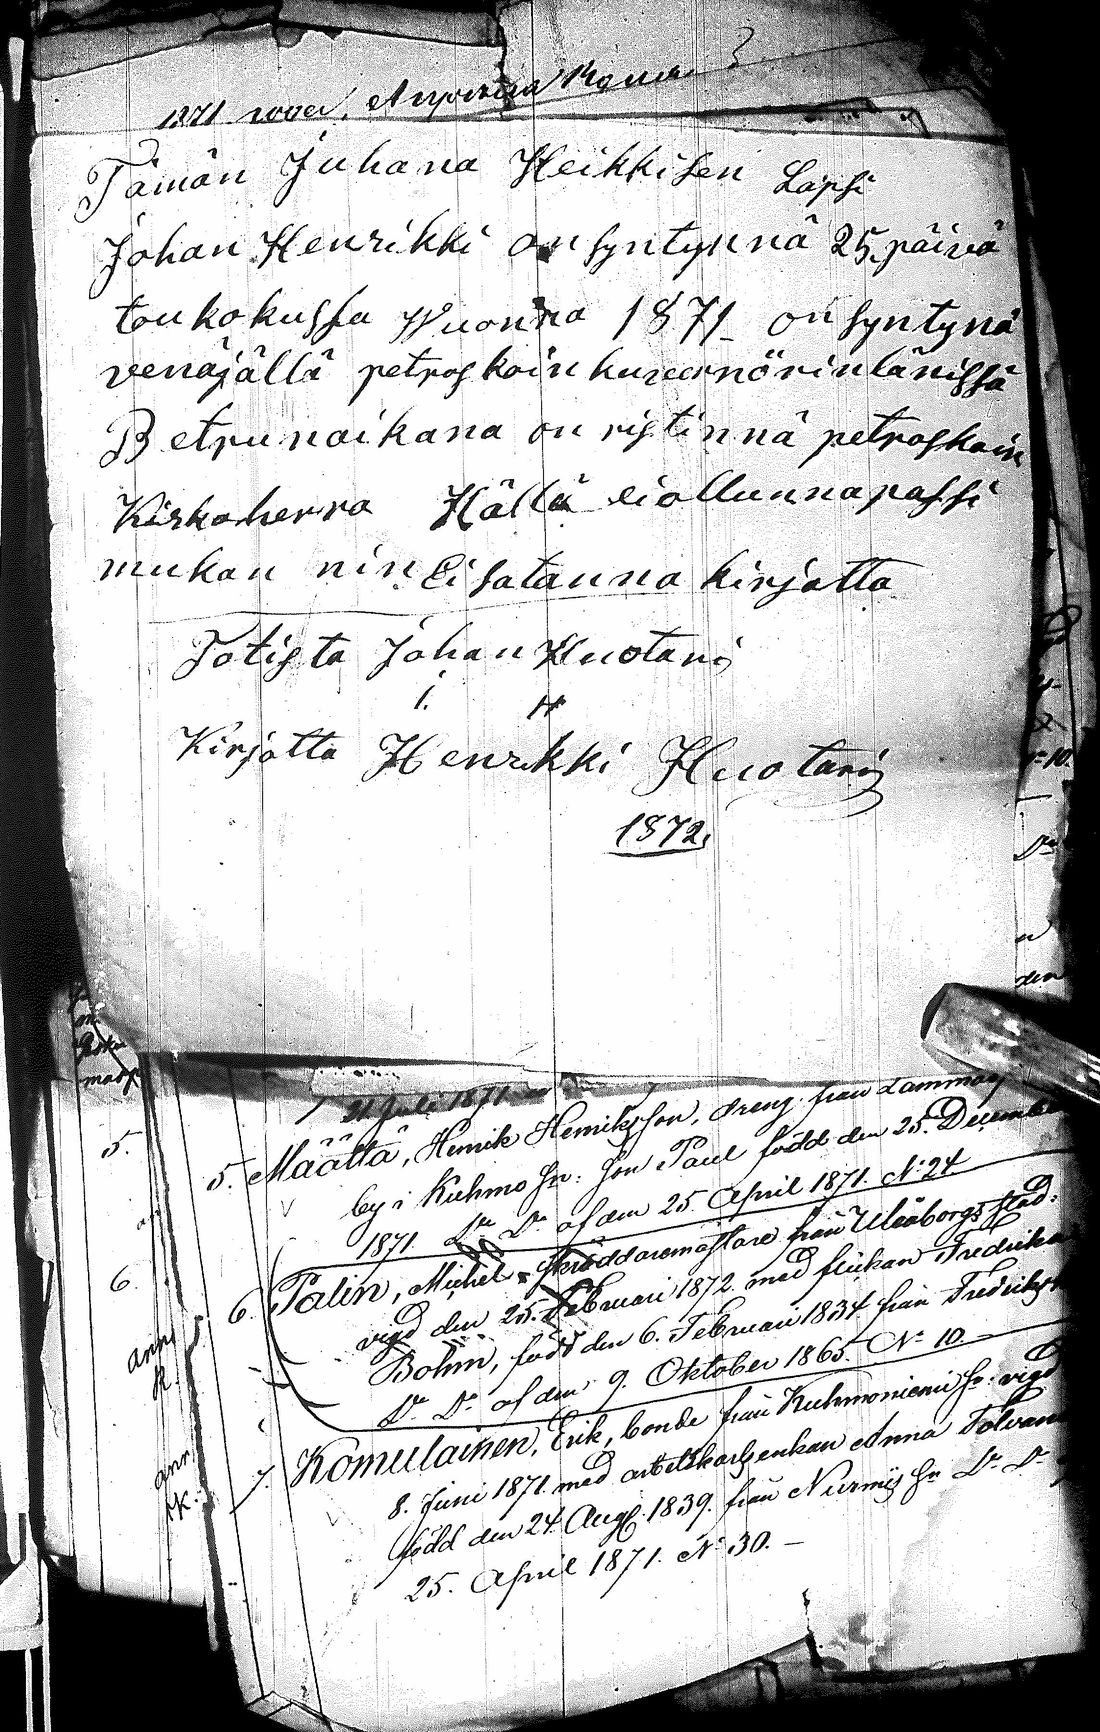 1871
Tämän Juhana Heikkisen Lapsi
Johan Henrikki on syntynnä 25 päivä
toukokussa Wuonna 1871 on syntynä
venäjällä petroskoin kuvernörinlänissä
Betrunaikana on ristinnä petroskoin
Kirkoherra Hällä eiollunna passi
mukan nin Ei satanna kirjotta
Totista Johan Huotari
i. H
Kirjotta Henrikki Huotari
1872.
21 Juli 1871
5.
5. Määttä, Henrik Henriksson, dreng från Lammas
by i Kuhmo sn: son Paul född den 25. December
1871. Do Do af den 25 April 1871. No 24
6.
6. Palin, Michel, skräddaremästare från Uleåborgs stad:
vigd den 25. Februari 1872 med flickan Fredrika
Bohm, född den 6. Februari 1834 från Fredriks
Do Do af den 9. Oktober 1865 No 10.
ann
K.
7. Komulainen, Erik, bonde från Kuhmoniemi sn: vigd
8. Juni 1871 med arbetskarlsenkan Anna Tolvan
ann
K.
född den 24 Aug. 1839. från Nurmis sn Do Do
25. April 1871. No 30.